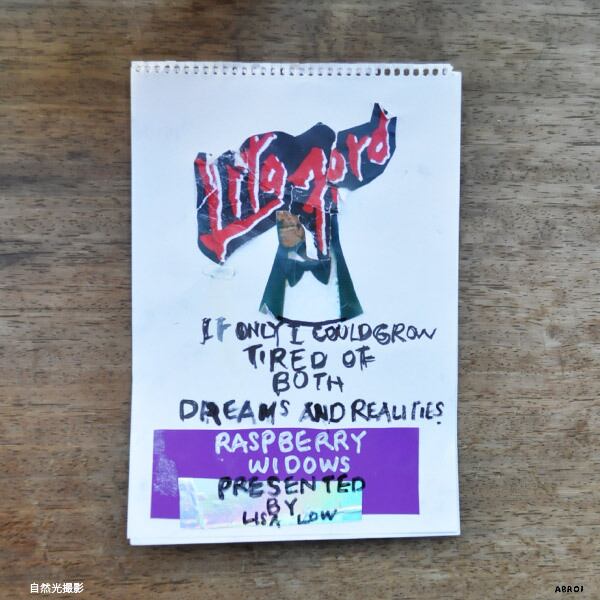 Lita Ford
IF ONLY I COULD GROW
TIRED OF
BOTH
DREAMS AND REALITIES
RASPBERRY
WIDOWS
PRESENTED
BY
LISA LOW
自然光撮影
ABR01